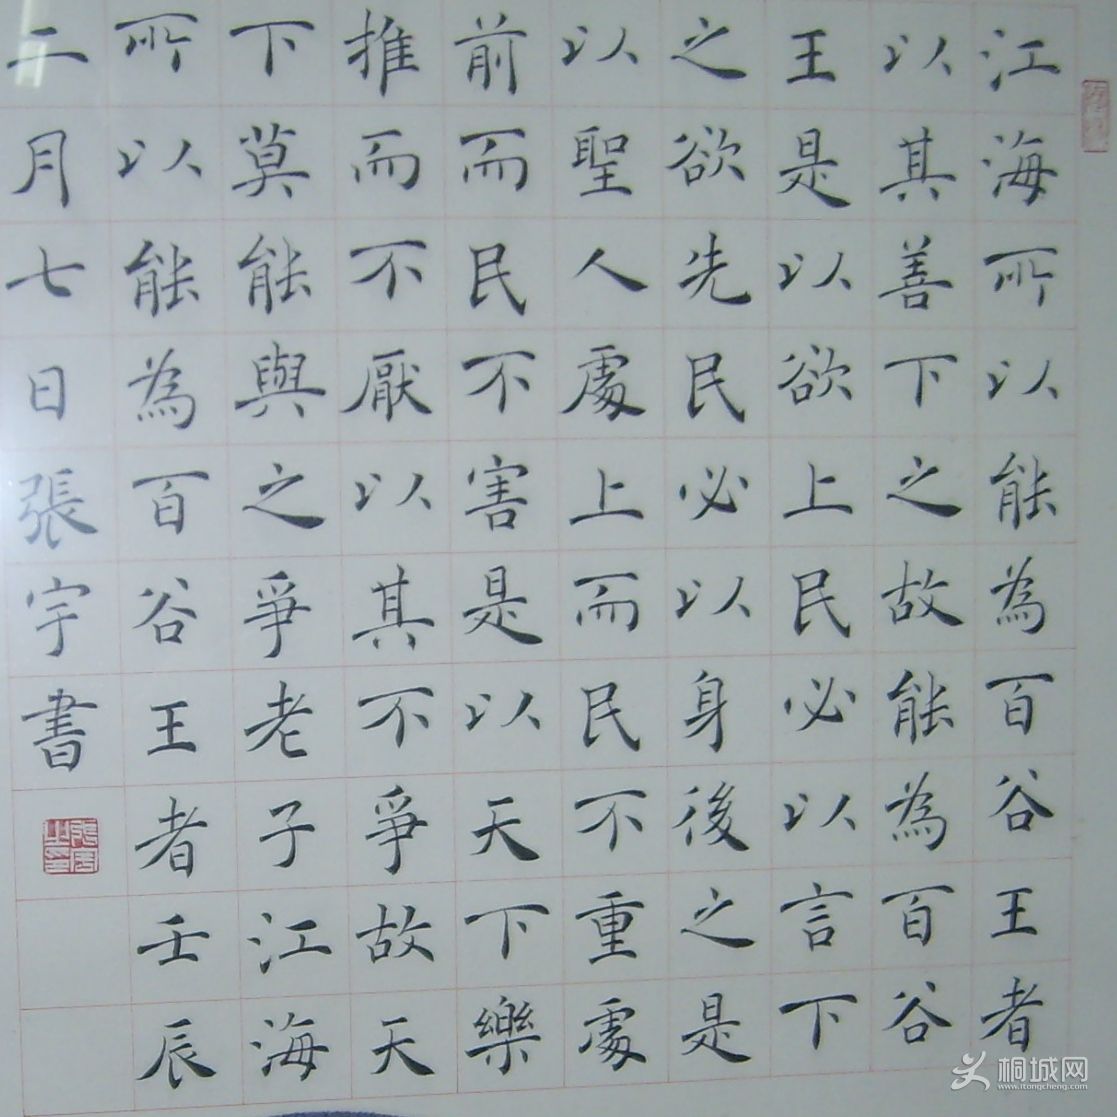 江海所以能為百谷王者
以其善下之故能為百谷
王是以欲上民必以言下
之欲先民必以身後之是
以聖人處上而民不重處
前而民不害是以天下樂
推而不厭以其不爭故天
下莫能與之爭老子江海
所以能為百谷王者壬辰
二月七日張宇書
桐城网
www.itongcheng.com